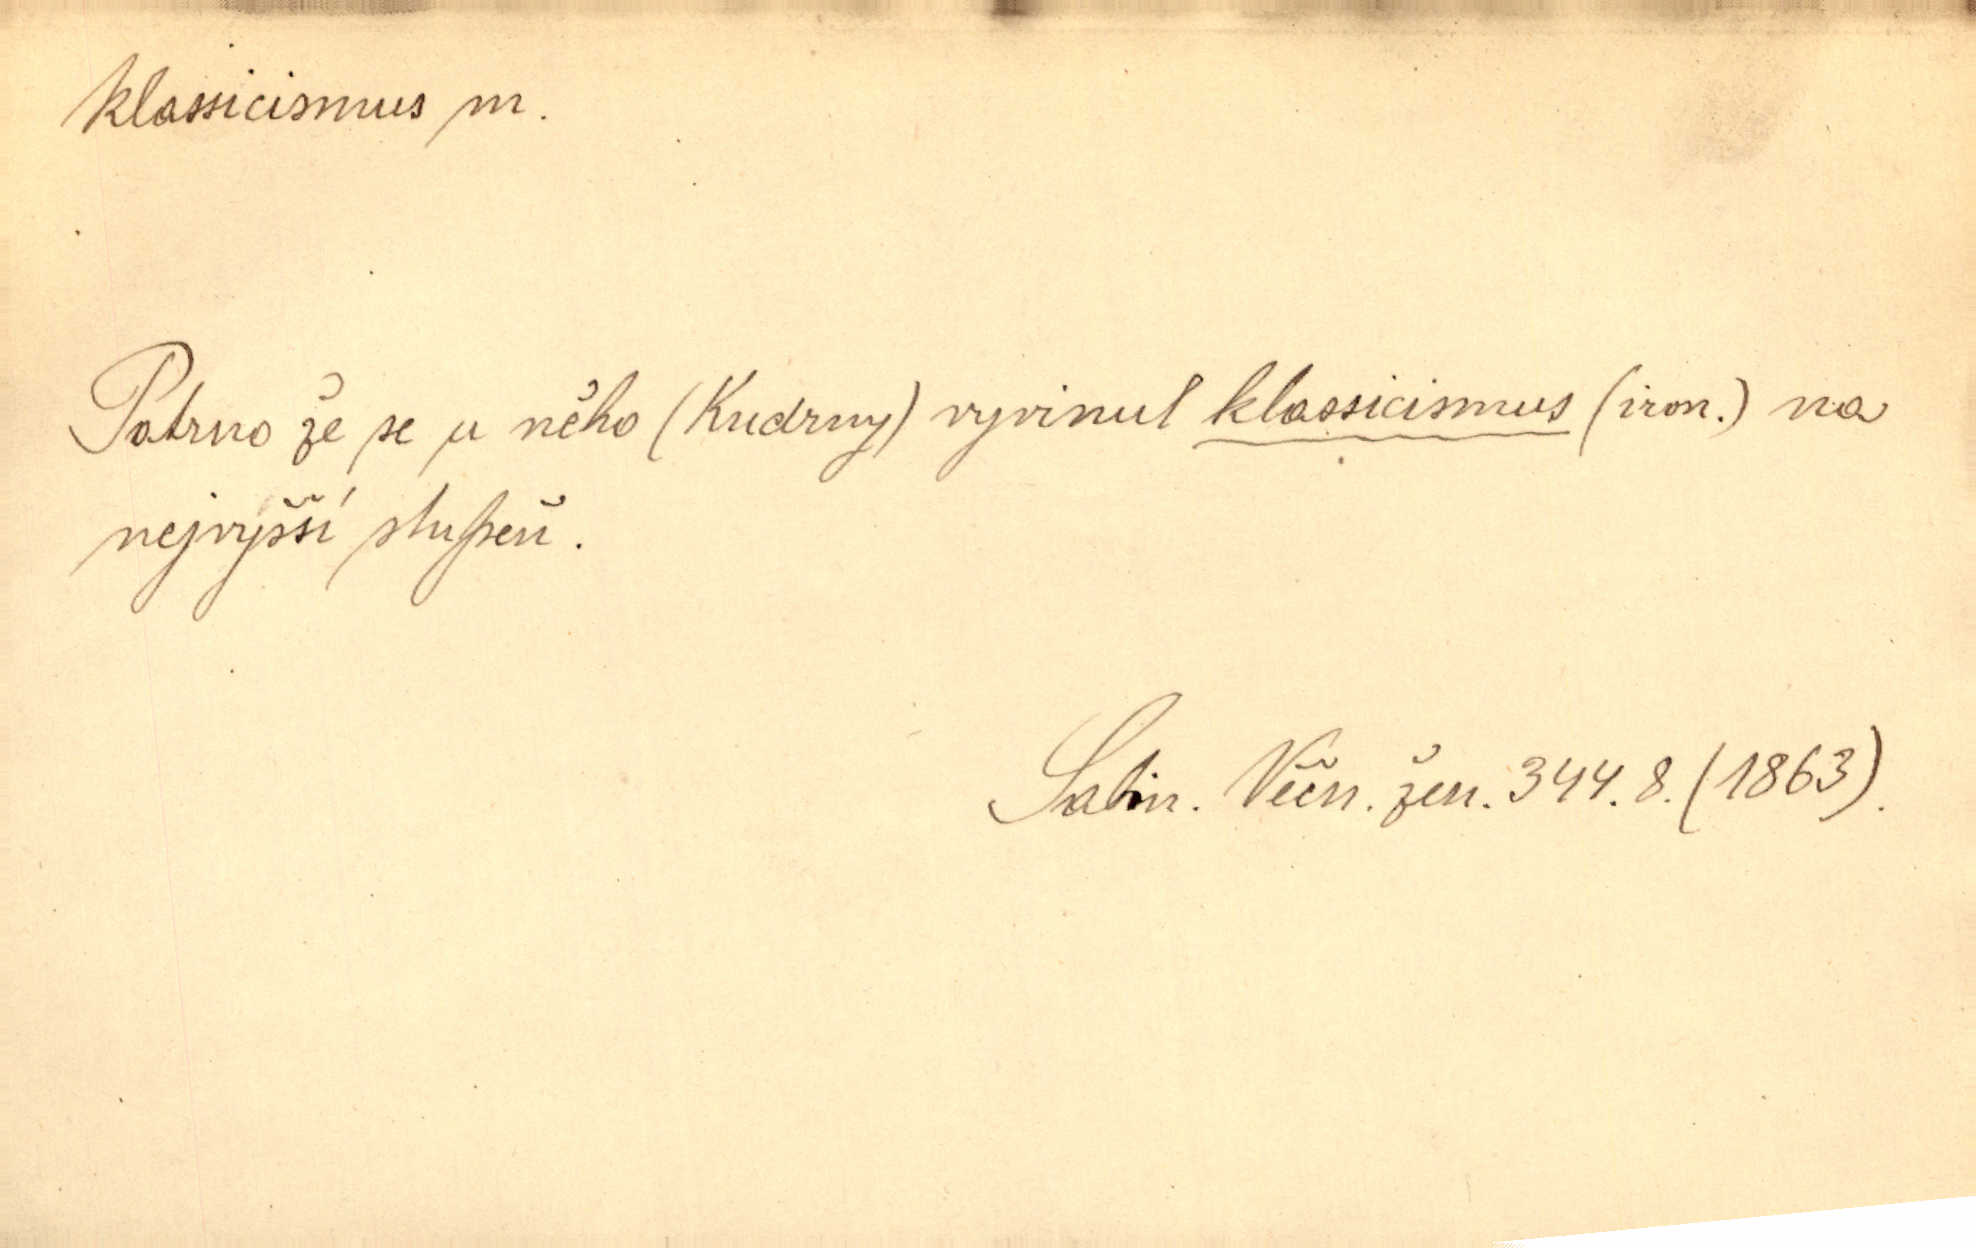 klassicismus m.
Patrno že se u něho (Kudrny) vyvinul klassicismus (iron.) na
nejvyšší stupeň.
Sabin. Věčn. žen. 344. 8. (1863).